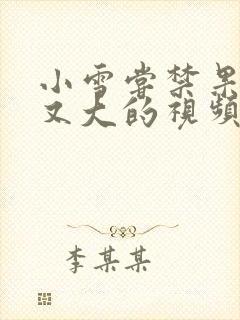 小雪嘗禁果
又大的視頻
李某某